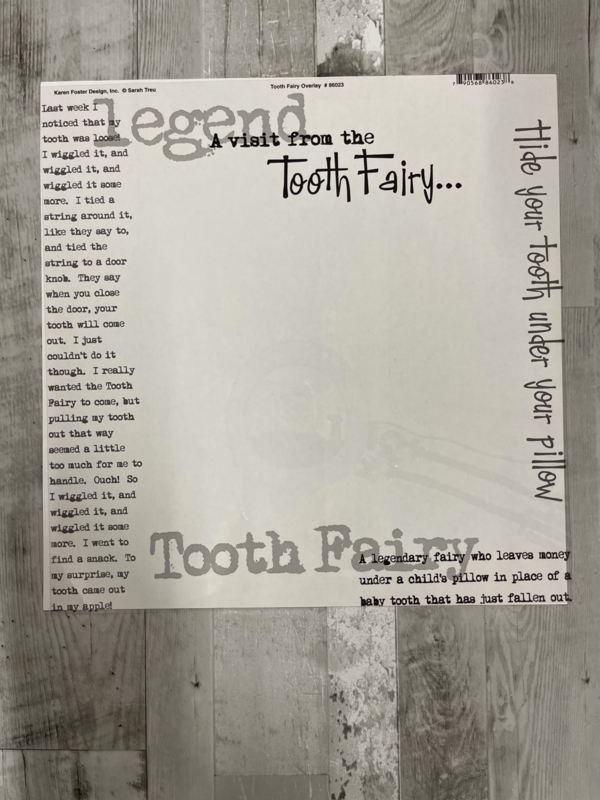 Karen Foster Design, Inc. © Sarah Treu
Tooth Fairy Overlay # 86023
7 90568 86023 6
Legend
A visit from the
Tooth Fairy...
Last week I
noticed that my
tooth was loose!
I wiggled it, and
wiggled it, and
wiggled it some
more. I tied a
string around it,
like they say to,
and tied the
string to a door
knob. They say
when you close
the door, your
tooth will come
out. I just
couldn't do it
though. I really
wanted the Tooth
Fairy to come, but
pulling my tooth
out that way
seemed a little
too much for me to
handle. Ouch! So
I wiggled it, and
wiggled it, and
wiggled it some
more. I went to
find a snack. To
my surprise, my
tooth came out
in my apple!
Hide your tooth under your pillow
Tooth Fairy
A legendary fairy who leaves money
under a child's pillow in place of a
baby tooth that has just fallen out.